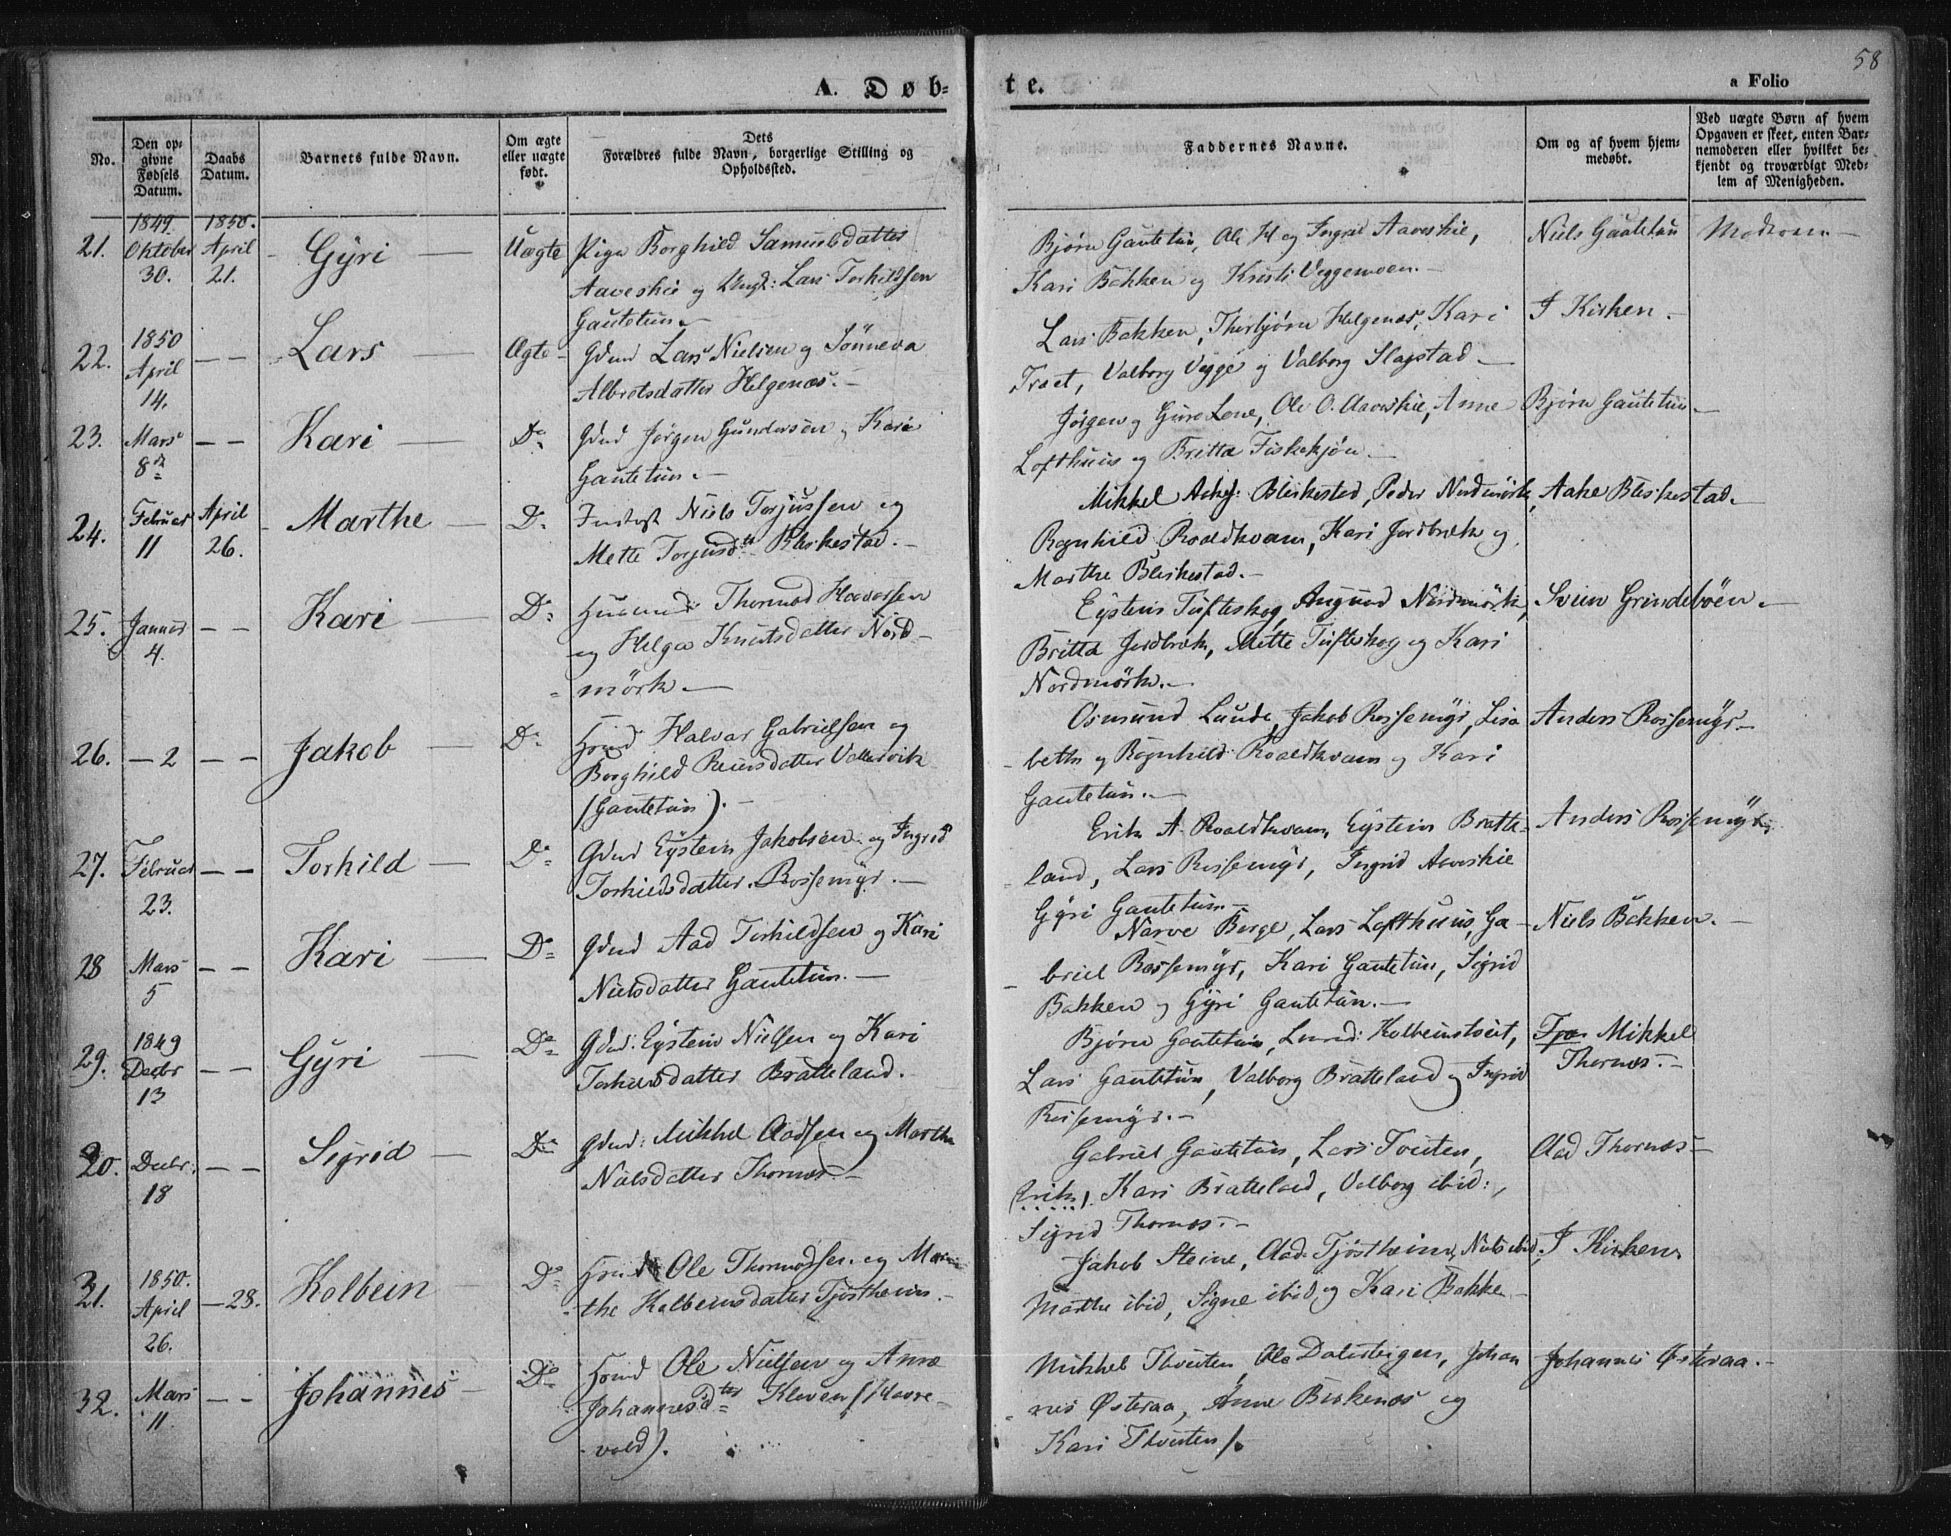 58
A. Døb-
te.
a Folio
No.
Den op-
givne
Fødsels
Datum.
Daabs
Datum.
Barnets fulde Navn.
Om ægte
eller uægte
født.
Dets
Forældres fulde Navn, borgerlige Stilling og
Opholdssted.
Faddernes Navne.
Om og af hvem hjem-
medøbt.
Ved uægte Børn af hvem
Opgaven er skeet, enten Bar-
nemoderen eller hvilket be-
kjendt og troværdigt Med-
lem af Menigheden.
21.
1849.
Oktober
30.
1850.
April
21.
Gÿri
Uægte
Pige Borghild Samuelsdatter
Aaveskie og Ungk: Lars Torkildsen
Gautetun.
Bjørn Gautetun, Ole H og Ingrid Aaveskie,
Kari Bakken og Kristi Veggemoen.
Niels Gautetun
Moderen
22.
1850
April
14.
— —
Lars
Ægte
Gdmd Lars Nielsen og Sönneva
Albretsdatter Helgenæs.
Lars Bakken, Thorbjörn Helgenæs, Kari
Traet, Valborg Vegge og Valborg Slapstad
I Kirken.
23.
Mars
8de
— —
Kari
Do
Gdmd Jørgen Gundersen og Kari
Gautetun.
Jörgen og Guro Lone, Ole O. Aaveskie, Anne
Lofthuus og Britta Fiskekjön
Bjørn Gautetun
24.
Februar
11
April
26.
Marthe
Do
Niels Torjussen og
Mette Torjusdtr Bleskestad.
Mikkel Bleskestad, Peder Nordmörk,
Ragnhild Roaldkvam, Kari Jordbrek og
Marthe Bleskestad.
Aake Bleskestad.
25.
Januar
4.
— —
Kari
Do
Huusmd Thormod Haavorsen
og Helga Knutsdatter Nord-
mörk
Eystein Tufteskog, Amund Nordmörk,
Britta Jordbrek, Mette Tufteskog og Kari
Nordmörk.
Svein Grindeböen.
26.
— 2
— —
Jakob
Do
Hmd Halvar Gabrielsen og
Borghild Reiersdatter Vallarvik
(Gautetun).
Osmund Lunde, Jakob Rossemÿr, Lisa-
beth og Ragnhild Roaldkvam og Kari
Gautetun.
Anders Rossemÿr
27.
Februar
23.
— —
Torkild
Do
Gdmd Eystein Jakobsen og Ingrid
Torkildsdatter Rossemÿr.
Erik A. Roaldkvam, Eystein Bratte-
land, Lars Rossemÿr, Ingrid Aaveskie
Gÿri Gautetun
Anders Rossemÿr
28
Mars
5
— —
Kari
Do
Gdmd Aad Torkildsen og Kari
Nielsdatter Gautetun.
Narve Berge, Lars Lofthuus, Ga-
briel Rossemÿr, Kari Gautetun, Sigrid
Bakken og Gÿri Gautetun.
Niels Bakken.
29.
1849
Decbr
13
— —
Gÿri
Do
Gdmd: Eystein Nielsen og Kari
Torkildsdatter Bratteland.
Bjørn Gautetun, Kolbeinstveit,
Lars Gautetun, Valborg Bratteland og Ingrid
Rossemÿr.
Mikkel
Thornæs.
20.
Decbr.
18
— —
Sigrid
Do
Gdmd: Mikkel Aadsen og Marthe
Nielsdatter Thornæs
Gabriel Gautetun, Lars Tveiten,
(Erik), Kari Bratteland, Valborg ibid:,
Sigrid Thornæs.
Aad Thornæs
31.
1850.
April
26.
— 28.
Kolbein
Do
Hmd Ole Thormodsen og Mar-
the Kolbeinsdatter Tjøstheim.
Jakob Steine, Aad Tjøstheim, Niels ibid,
Marthe ibid, Signe ibid og Kari Bakke
I Kirken
32.
Mars
11
— —
Johannes
Do
Hmd Ole Nielsen og Anne
Johannesdtter Kleven (Havre-
vold).
Mikkel Thveiten, Ole Dalesteigen, Johan-
nes Østeraa, Anne Birkenæs og
Kari Thveiten
Johannes Østeraa.